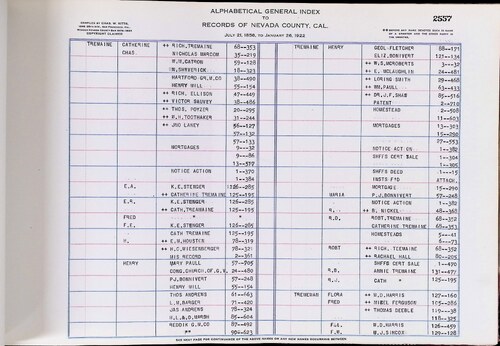 ALPHABETICAL GENERAL INDEX
TO
RECORDS OF NEVADA COUNTY, CAL.
2557
JULY 21, 1856, TO JANUARY 28, 1922
COMPILED BY CHAS. W. KITTS,
COPYRIGHT CLAIMED
TREMAINE CATHERINE ++ RICH, TREMAINE 68--353 TREMAINE HENRY GEOL. FLETCHER 88--171
CHAS. NICHOLAS MARCOM 35--219 ELIZ BONIVERT 127--134
W.M. CATRON 59--128 ++ W.S. MCROBERTS 3---32
18--323 ++ E. MCLAUGHLIN 24--481
HARTFORD GR.M.CO 38--400 ++ LORING SMITH 29--468
HENRY WILL 55--154 ++ WM. PAULL 63--433
++ RICH. ELLISON 47--449 ++ DR. J.F. SHAW 85--516
++ VICTOR SAUVEY 38--486 PATENT 2--210
++ THOS. POYZER 20--295 HOMESTEAD 2--508
++ B.H. TOOTHAKER 31--244 11--603
++ JNO LAHEY 56--127 MORTGAGES 13--303
57--132 15--290
57--133 27--553
MORTGAGES 9---32 NOTICE ACTION 1--382
9---86 SHFFS CERT SALE 1--304
13--577 1--305
NOTICE ACTION 1--370 SHFFS DEED 1---15
1--384 INSTS F*D ATTACH.
E.A. K.E. STENGER 126--285 MORTGAGE 15--290
++ CATHERINE TREMAINE 125--195 MARIA P.J. BONNIVERT 57--248
E.R. K.E. STENGER 126--285 NOTICE ACTION 1--382
++ CATH. TREMAINE 125--195 R. ++ B. NICKEL 48--368
FRED " " R.D. ROBT. TREMAINE 68--352
F.E. K.E. STENGER 126--285 CATHERINE TREMAINE 68--353
CATH TREMAINE 125--195 HOMESTEADS 5---41
H. ++ E.M. HOUSTER 78--319 6---73
++ H.C. WIESENBERGER 78--321 ROBT ++ RICH, TREMAINE 68--352
MIS RECORD 2--361 ++ RACHAEL HALL 80--205
HENRY MARY PAULL 57--705 SHFFS CERT SALE 1--490
CONG. CHURCH OF G.V. 24--480 R.D. ANNIE TREMAINE 131--477
P.J. BONNIVERT 57--248 R.J. CATH " 125--195
HENRY WILL 55--154
THOS ANDREWS 61--563 TREMENAN FLORA ++ W.D. HARRIS 127--160
L.M. BARGER 71--420 FRED ++ MABEL FERGUSON 118--285
JAS ANDREWS 78--324 ++ THOMAS DEEBLE 119---38
H.L. & O. MARSH 85--604 118--325
REDDIN G.M.CO 87--492 F.G. W.D. HARRIS 126--459
F.W. W.J. SINCOK 129--128
SEE NEXT PAGE FOR CONTINUANCE OF THE ABOVE NAMES OR ANY NEW NAMES OCCURRING BETWEEN